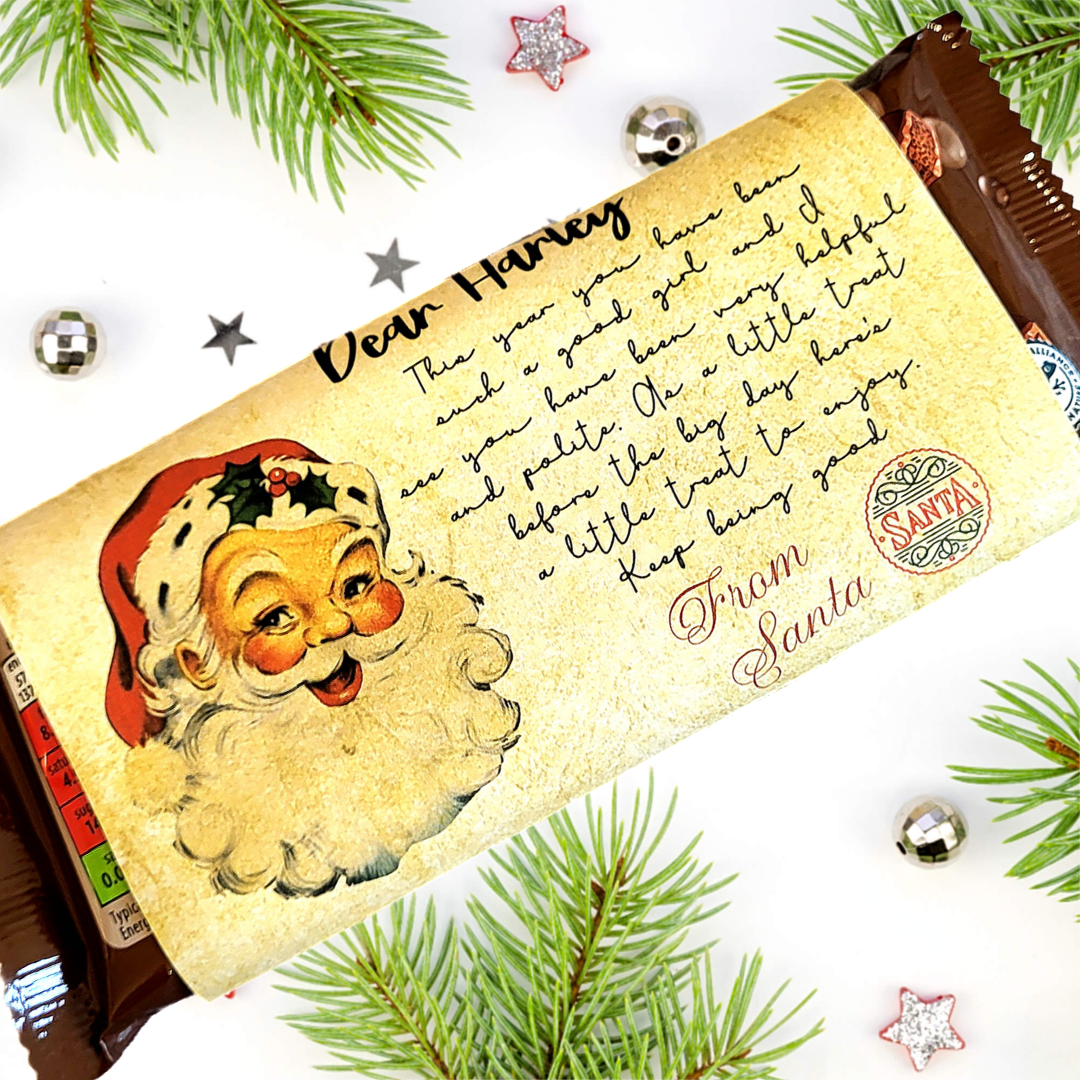 Dear Harley
This year you have been
such a good girl and I
see you have been very helpful
and polite. As a little treat
before the big day here's
a little treat to enjoy.
Keep being good
From
Santa
SANTA
ALLIANCE
57
137
8
4
14
0.0